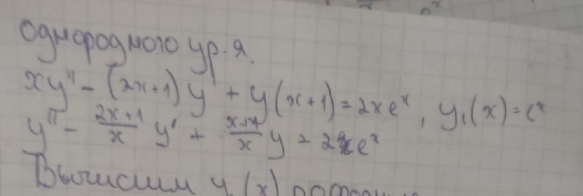 однородного ур-я.
xy'' - (2x+1) y' + y(x+1) = 2xeˣ, y₁(x) = eˣ
y'' - \frac{2x+1}{x} y' + \frac{x+1}{x} y = 2eˣ
Вычислим y (x)